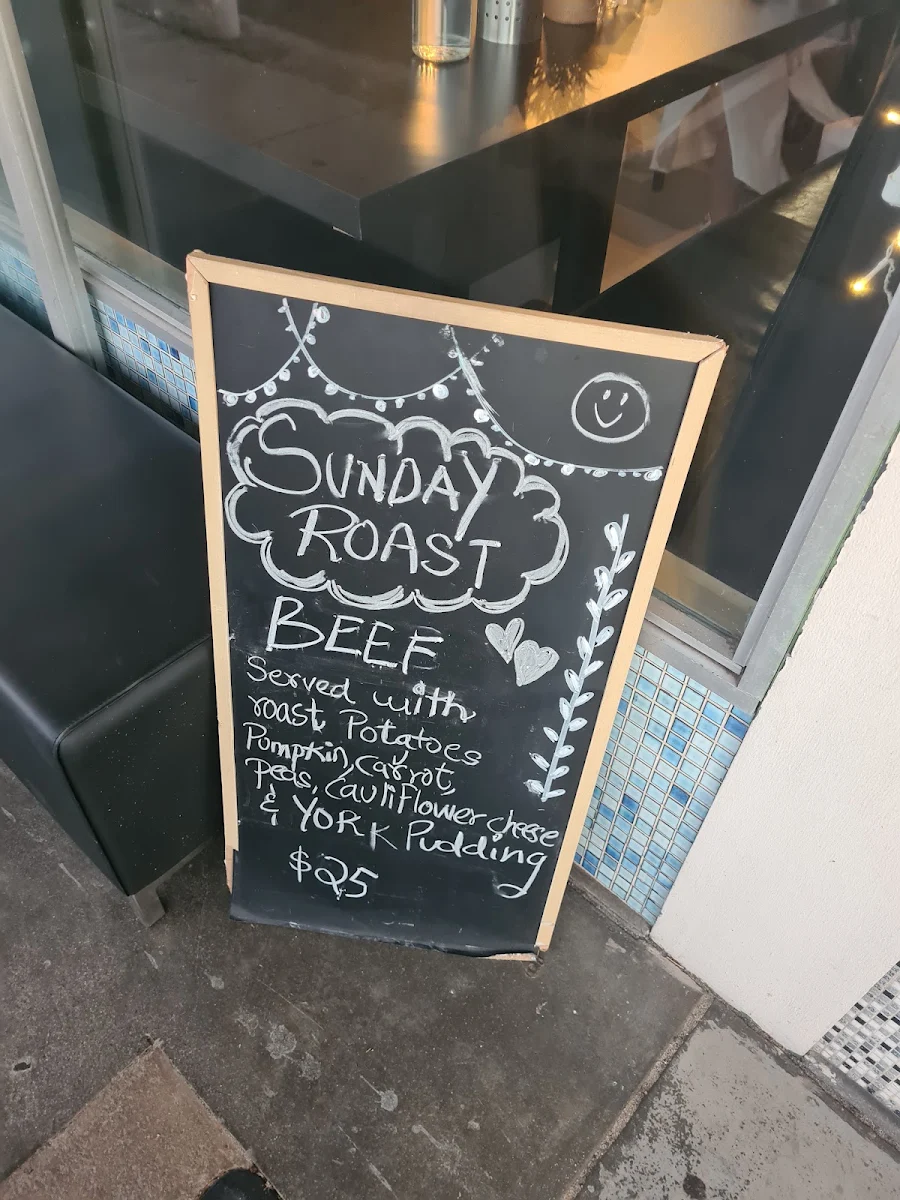 SUNDAY
ROAST
BEEF
Served with
roast Potatoes
Pompkin, Carrot,
Peas, Cauliflower cheese
& YORK Pudding
$25